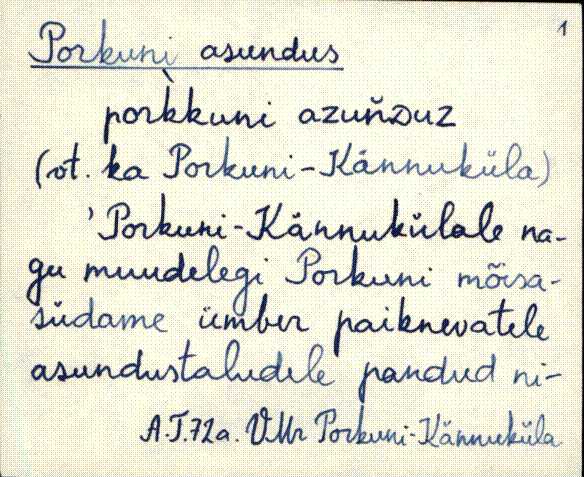 1
Porkuni asundus
pork̀kuni azuňᴅuz
(vt. ka Porkuni-Kännuküla)
'Porkuni-Kännukülale na-
gu muudelegi Porkuni mõisa-
südame ümber paiknevatele
asundustaludele pandud ni-
A.T.72a. VMr Porkuni-Kännuküla